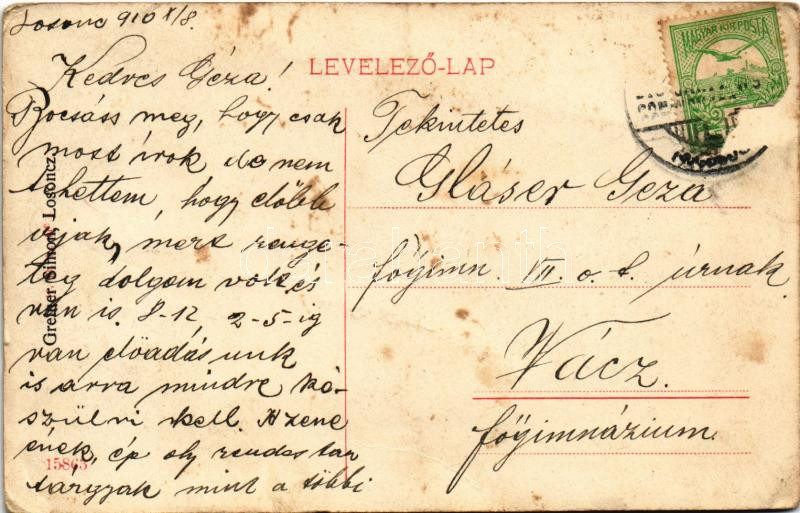 Losonc 910 X/8.
Kedves Géza!
Bocsáss meg, hogy csak
most írok de nem
tehettem, hogy előbb
írjak, mert renge-
teg dolgom volt, és
van is. 8-12 2-5-ig
van előadásunk
is arra mindre ké-
szülni kell. A zene
ének, ép oly rendes tan
tárgyak mint a többi
LEVELEZŐ-LAP
MAGYAR KIR. POSTA
Tekintetes
Gláser Géza
főgimn. VII o. t. úrnak
Vácz.
főgimnázium.
Greiner Simon, Losoncz
15863
darabanth